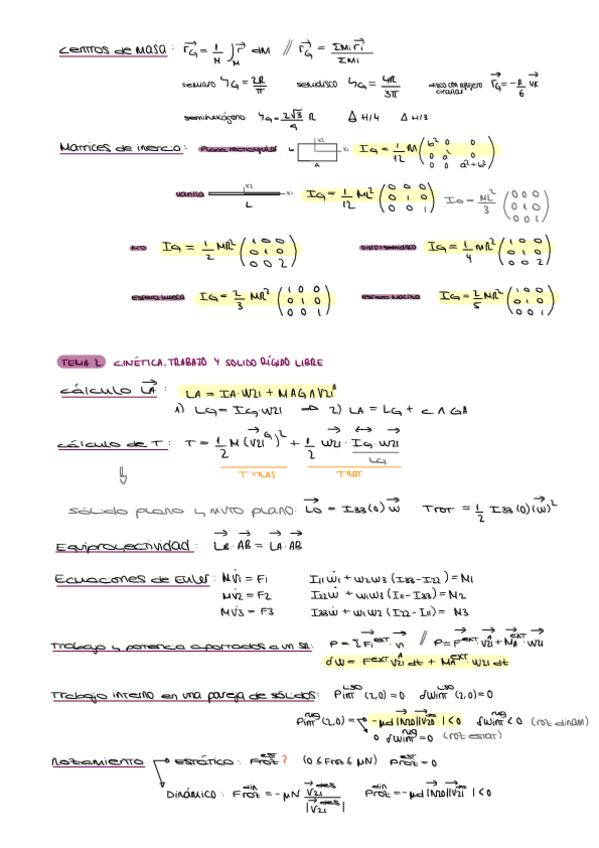 Centros de masa: r⃗G = 1/M ∫M r⃗ dM // r⃗G = ΣMi r⃗i / ΣMi
semiaro yG = 2R/π semidisco yG = 4R/3π disco con agujero circular r⃗G = -R/6
semihexágono yG = 2√3/9 R △ H/4 △ H/3
Matrices de inercia: Placas rectangular b a x2 x1 IG = 1/12 M (b² 0 0 / 0 a² 0 / 0 0 a²+b²)
varilla x2 x1 L IG = 1/12 ML² (0 0 0 / 0 1 0 / 0 0 1) IO = ML²/3 (0 0 0 / 0 1 0 / 0 0 1)
Aro IG = 1/2 MR² (1 0 0 / 0 1 0 / 0 0 2) Disco = semidisco IG = 1/4 MR² (1 0 0 / 0 1 0 / 0 0 2)
esfera hueca IG = 2/3 MR² (1 0 0 / 0 1 0 / 0 0 1) esfera maciza IG = 2/5 MR² (1 0 0 / 0 1 0 / 0 0 1)
TEMA 2 CINÉTICA, TRABAJO Y SOLIDO RÍGIDO LIBRE
cálculo L⃗A: LA = IA·W21 + MAG∧V21ᴬ
1) LG = IG·W21 → 2) LA = LG + C∧GA
cálculo de T: T = 1/2 M (V⃗21ᴳ)² + 1/2 W⃗21·IG·W⃗21
LG
T TRAS TROT
Sólido plano y MVTO plano: L⃗O = I33(O) w⃗ TROT = 1/2 I33(O)(w⃗)²
Equiproyectividad: L⃗B·A⃗B = L⃗A·A⃗B
Ecuaciones de Euler: MV̇1 = F1 I11ẇ1 + w2w3 (I33-I22) = M1
MV̇2 = F2 I22ẇ + w1w3 (I11-I33) = M2
MV̇3 = F3 I33ẇ + w1w2 (I22-I11) = M3
Trabajo y potencia aportados a un SR: P = ΣF⃗iᴱˣᵀ·v⃗i // P = F⃗ᴱˣᵀ·V⃗21ᴬ + M⃗Aᴱˣᵀ·W⃗21
δW = Fᴱˣᵀ·V21ᴬ dt + MAᴱˣᵀ·W21 dt
Trabajo interno en una pareja de sólidos: Pintᴸᴵˢᴼ (2,0) = 0 δWintᴸᴵˢᴼ (2,0) = 0
Pintᴿᵁᴳ (2,0) = -μd |N⃗20||V⃗20| < 0 δWintᴿᵁᴳ < 0 (roz dinam)
0 δWintᴿᵁᴳ = 0 (roz estat)
Rozamiento ESTÁTICO: Frozᵉˢᵗ ? (0 ≤ Froz ≤ μN) Prozᵉˢᵗ = 0
Dinámico: Frozᵈⁱⁿ = -μN V⃗21ᵈᵉˢ / |V⃗21ᵈᵉˢ| Prozᵈⁱⁿ = -μd |N⃗20||V⃗21| < 0